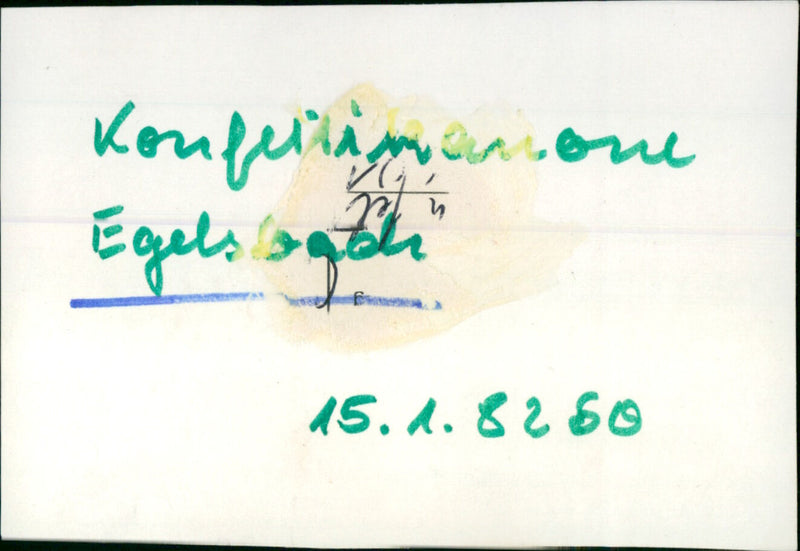 Konfettikanone
Egelsbach
15.1.82 60